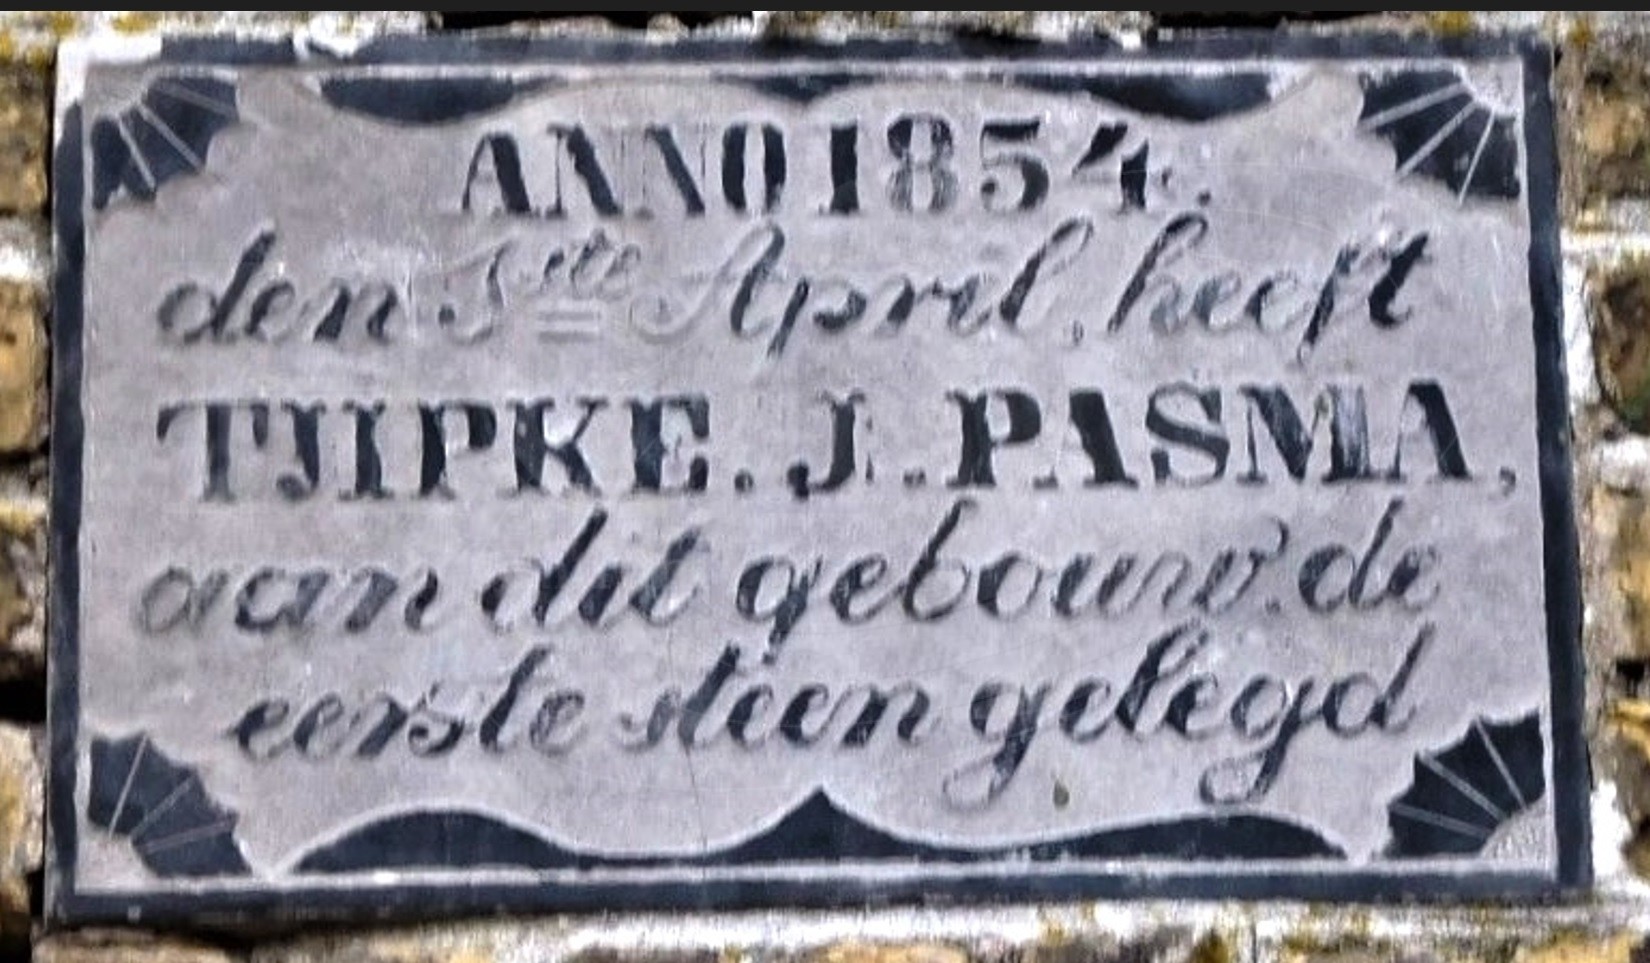 ANNO 1854.
den 1ste April, heeft
TJIPKE. J. PASMA,
aan dit gebouw. de
eerste steen gelegd